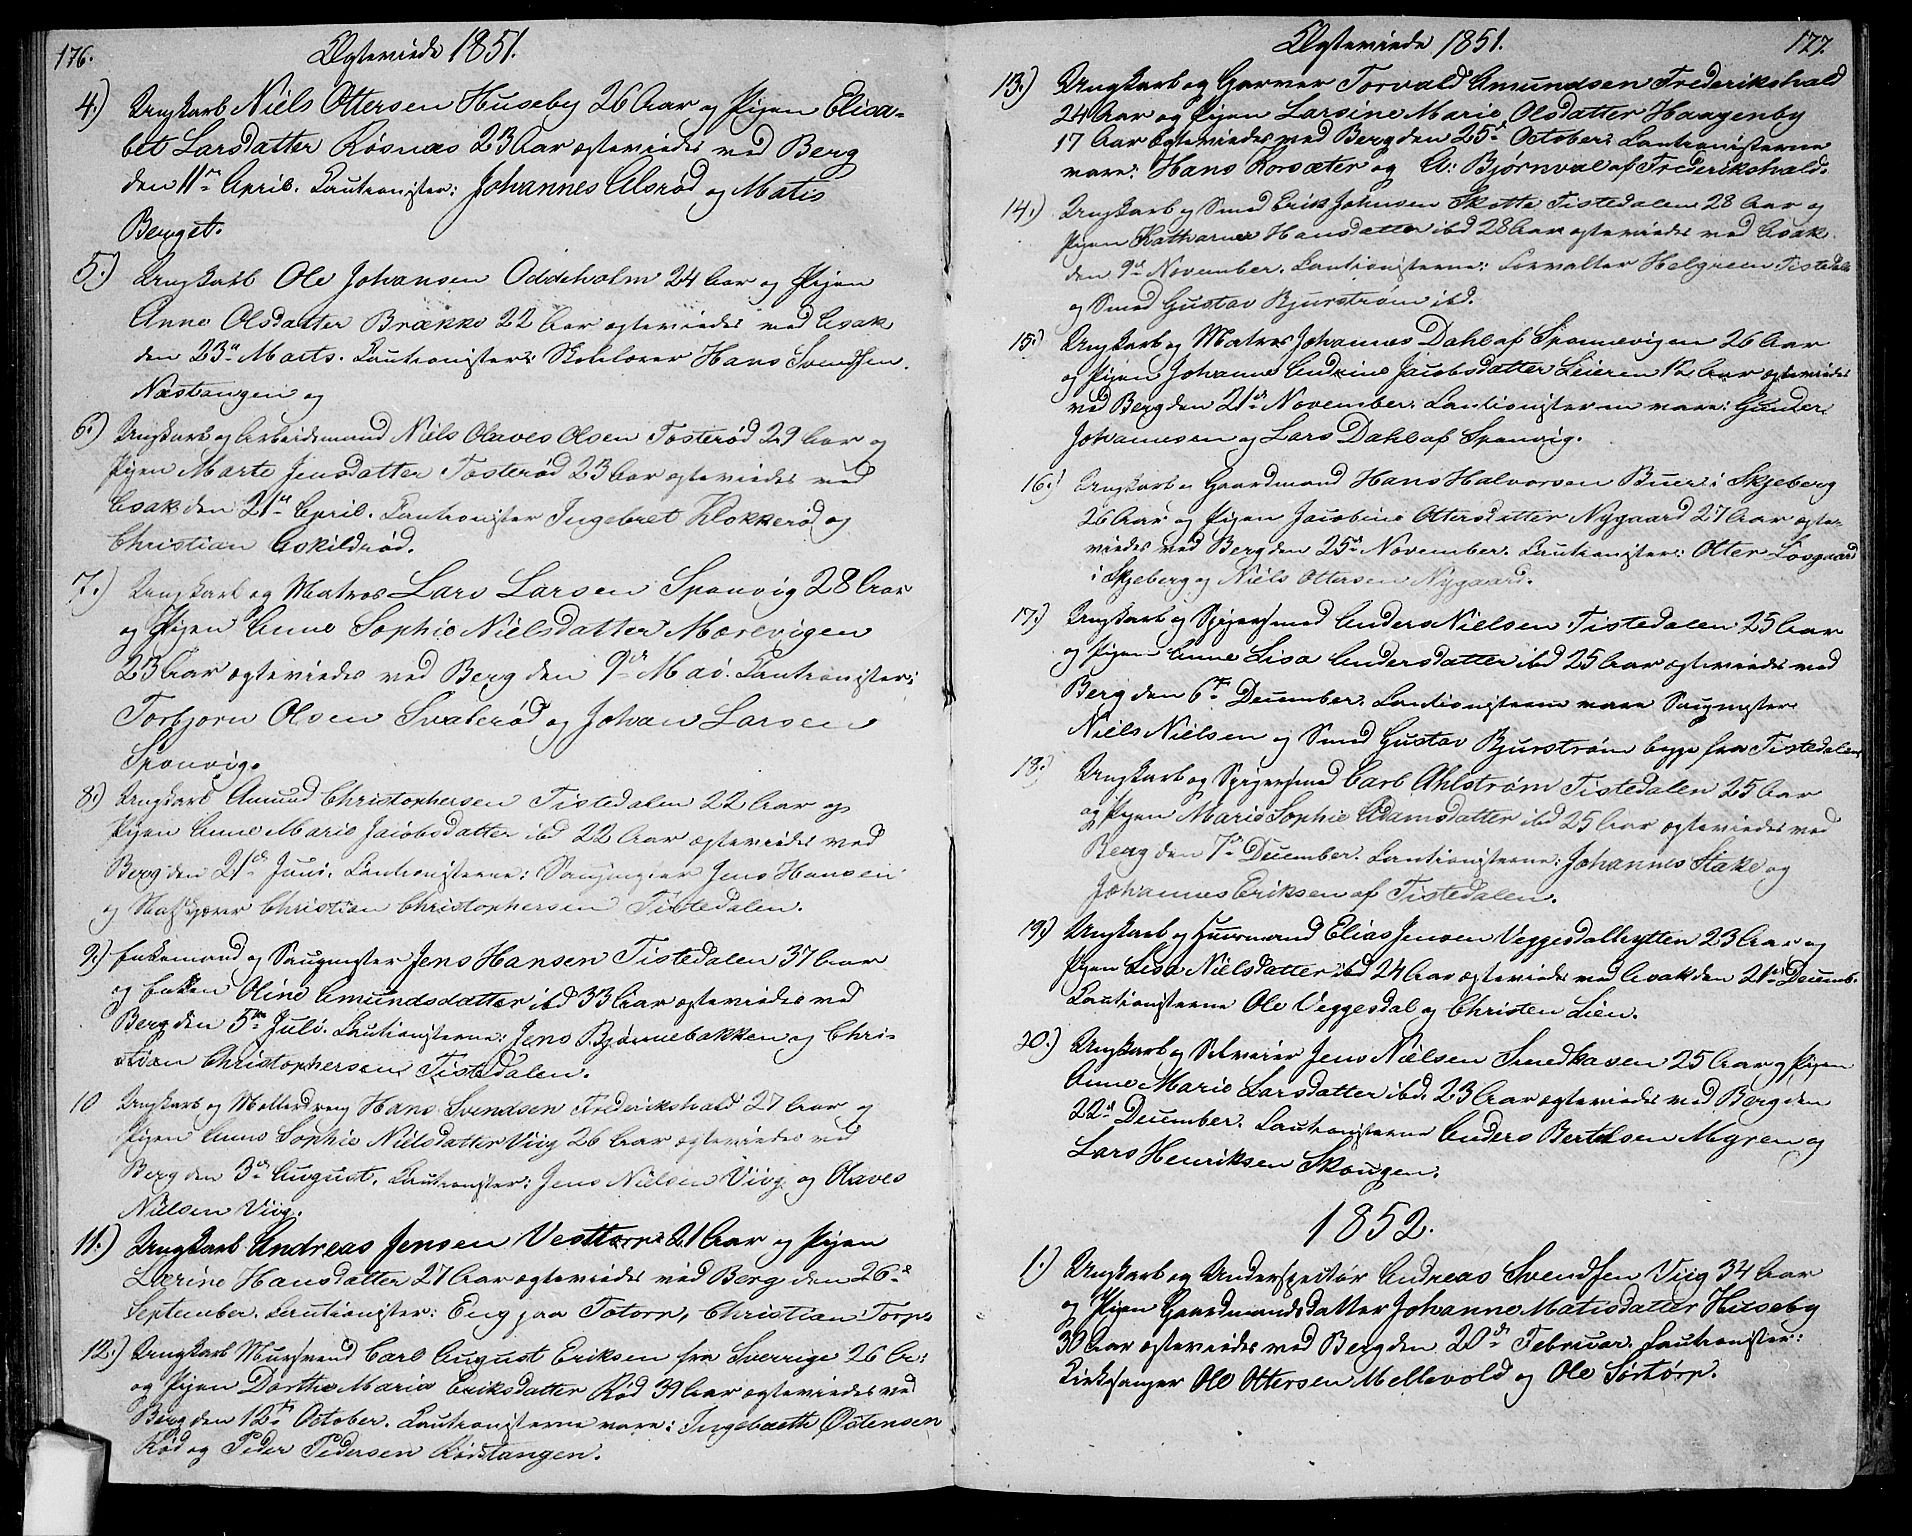 176.
Ægteviede 1851.
4.) Ungkarl Niels Ottersen Huseby 26 Aar og Pigen Elisa-
bet Larsdatter Røsnæs 23 Aar ægteviedes ved Berg
den 11te April. Cautionister: Johannes Alsrød og Matis
Berget.
5.) Ungkarl Ole Johansen Oddeholm 24 Aar og Pigen
Anne Olsdatter Brække 22 Aar ægteviedes ved Asak
den 23de Marts. Cautionister: Skolelærer Hans Svendsen
Næstangen og
6.) Ungkarl og Arbeidsmand Niels Olaves Olsen Tosterød 29 Aar og
Pigen Marte Jensdatter Tosterød 23 Aar ægteviedes ved
Asak den 21de April. Cautionister Ingebret Klokkerød og
Christian Askildrød.
7.) Ungkarl og Matros Lars Larsen Sponvig 28 Aar
og Pigen Anne Sophie Nielsdatter Mørevigen
23 Aar ægteviedes ved Berg den 9de Mai. Cautionister:
Torbjørn Olsen Svalerød og Johan Larsen
Sponvig.
8.) Ungkarl Amund Christophersen Tistedalen 22 Aar og
Pigen Anne Marie Jacobsdatter ibd 22 Aar ægteviedes ved
Berg den 21de Juni. Cautionisterne: Saugmester Jens Hansen
og Christian Christophersen Tistedalen.
9.) Enkemand og Saugmester Jens Hansen Tistedalen 37 Aar
og Enken Oline Amundsdatter ibd 33 Aar ægteviedes ved
Berg den 5te Juli. Cautionisterne: Jens Bjørnebakken og Chri-
stian Christophersen Tistedalen.
10 Ungkarl og Mølledreng Hans Svendsen Frederikshald 27 Aar og
Pigen Anne Sophie Nielsdatter Viig 26 Aar ægteviedes ved
Berg den 3de August. Cautionister: Jens Nielsen Viig og Olaves
Nielsen Viig.
11.) Ungkarl Andreas Jensen Vesttorp 21 Aar og Pigen
Lærine Hansdatter 27 Aar ægteviedes ved Berg den 26de
September. Cautionister: Eng paa Totorp, Christian Torp.
12.) Ungkarl Mursvend Carl August Eriksen fra Sverrige 26 A:
og Pigen Dorthe Maria Eriksdatter Rød 39 Aar ægteviedes ved
Berg den 12te October. Cautionisterne vare: Ingebreth Østensen
Rød og Peder Pedersen Kørstangen.
Ægteviede 1851.
177.
13.) Ungkarl og Garver Torvald Amundsen Frederikshald
24 Aar og Pigen Larsine Marie Olsdatter Haagenby
17 Aar ægteviedes ved Berg den 25de October. Cautionisterne
vare: Hans Korsæter og A: Bjørnval af Frederikshald.
14.) Ungkarl og Smed Erik Johnsen Skotte Tistedalen 28 Aar og
Pigen Katharine Hansdatter ibd 28 Aar ægteviedes ved Asak
den 9de November. Cautionisterne: Forvalter Helgreen Tistedale
og Smed Gustav Bjurstrøm ibd.
15.) Ungkarl og Matros Johannes Dahl af Sponnevigen 26 Aar
og Pigen Johanne Andrine Jacobsdatter Leieren Aar ægteviedes
ved Berg den 21de November. Cautionisterne vare: Gunder
Johannesen og Lars Dahl af Sponvig.
16.) Ungkarl og Gaardmand Hans Halvorsen Buer i Skjeberg
26 Aar og Pigen Jacobine Ottersdatter Nygaard 27 Aar ægte-
viedes ved Berg den 25de November. Cautionister: Otter Løsgaard
i Skjeberg og Niels Ottersen Nygaard.
17.) Ungkarl og Spigersmed Anders Nielsen Tistedalen 25 Aar
og Pigen Anne Lisa Andersdatter ibd 25 Aar ægteviedes ved
Berg den 6te December. Cautionisterne vare Saugmester
Niels Nielsen og Smed Gustav Bjurstrøm begge fra Tistedalen
18.) Ungkarl og Spigersmed Carl Ahlstrøm Tistedalen 25 Aar
og Pigen Marie Sophie Adamsdatter ibd 25 Aar ægteviedes ved
Berg den 7de December. Cautionisterne: Johannes Stake og
Johannes Eriksen af Tistedalen.
19.) Ungkarl og Huusmand Elias Jensen Veggesdalhytten 23 Aar og
Pigen Lisa Nielsdatter ibd 24 Aar ægteviedes ved Asak den 21de Decemb.
Cautionisterne Ole Veggesdal og Christen Lien.
20.) Ungkarl og Selveier Jens Nielsen Svedkasen 25 Aar og Pigen
Anne Marie Larsdatter ibd. 23 Aar ægteviedes ved Berg den
22de December. Cautionisterne Anders Bertelsen Myren og
Lars Henriksen Skougen.
1852.
1.) Ungkarl og Andreas Svendsen Viig 34 Aar
og Pigen Gaardmandsdatter Johanne Matisdatter Huseby
30 Aar ægteviedes ved Berg den 20de Februar. Cautionister:
Kirkesanger Ole Ottersen Mellevold og Ole Sørtorp.